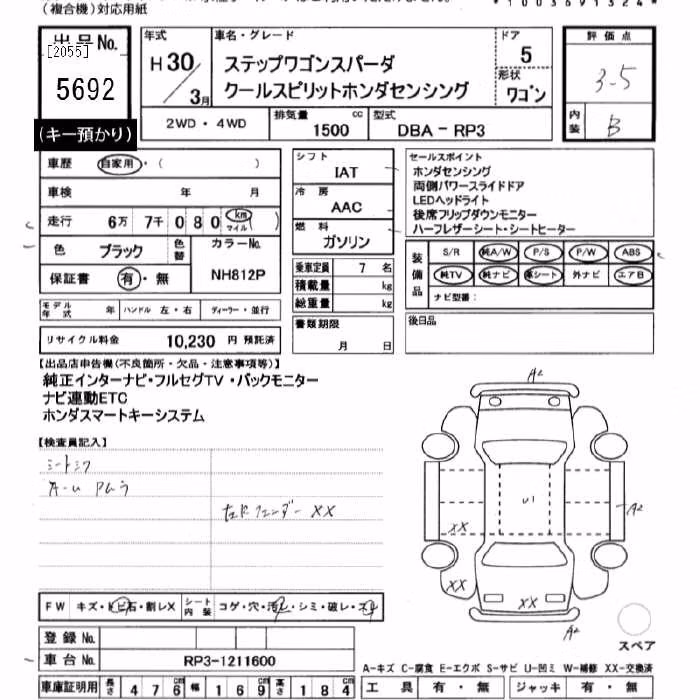 (複合機)対応用紙
出品No.
[2055]
5692
(キー預かり)
年式
H30/3月
車名・グレード
ステップワゴンスパーダ
クールスピリットホンダセンシング
ドア
5
形状
ワゴン
評価点
3-5
内装
B
2WD・4WD
排気量
1500
cc
型式
DBA-RP3
車歴
自家用・( )
車検 年 月
走行 6万 7千 0 8 0 (km マイル)
色 ブラック
色替
カラーNo.
NH812P
保証書 有・無
モデル年式 年
ハンドル 左・右
ディーラー・並行
リサイクル料金 10,230 円 預託済
シフト
IAT
冷房
AAC
燃料
ガソリン
乗車定員 7 名
積載量 kg
総重量 kg
書類期限
月 日
セールスポイント
ホンダセンシング
両側パワースライドドア
LEDヘッドライト
後席フリップダウンモニター
ハーフレザーシート・シートヒーター
装備品
S/R 純A/W P/S P/W ABS
純TV 純ナビ 革シート 外ナビ エアB
ナビ型番:
後日品
【出品店申告欄(不良箇所・欠品・注意事項等)】
純正インターナビ・フルセグTV・バックモニター
ナビ連動ETC
ホンダスマートキーシステム
【検査員記入】
シートシワ
左リアフェンダー XX
A2
U1
A2
XX
XX
XX
A2
スペア
FW キズ・トビ石・割レX
シート内装 コゲ・穴・汚レ・シミ・破レ・スレ
登録No.
車台No. RP3-1211600
A-キズ C-腐食 E-エクボ S-サビ U-凹ミ W-補修 XX-交換済
車庫証明用 長さ 4 7 6 cm 幅 1 6 9 cm 高さ 1 8 4 cm
工具 有・無 ジャッキ 有・無